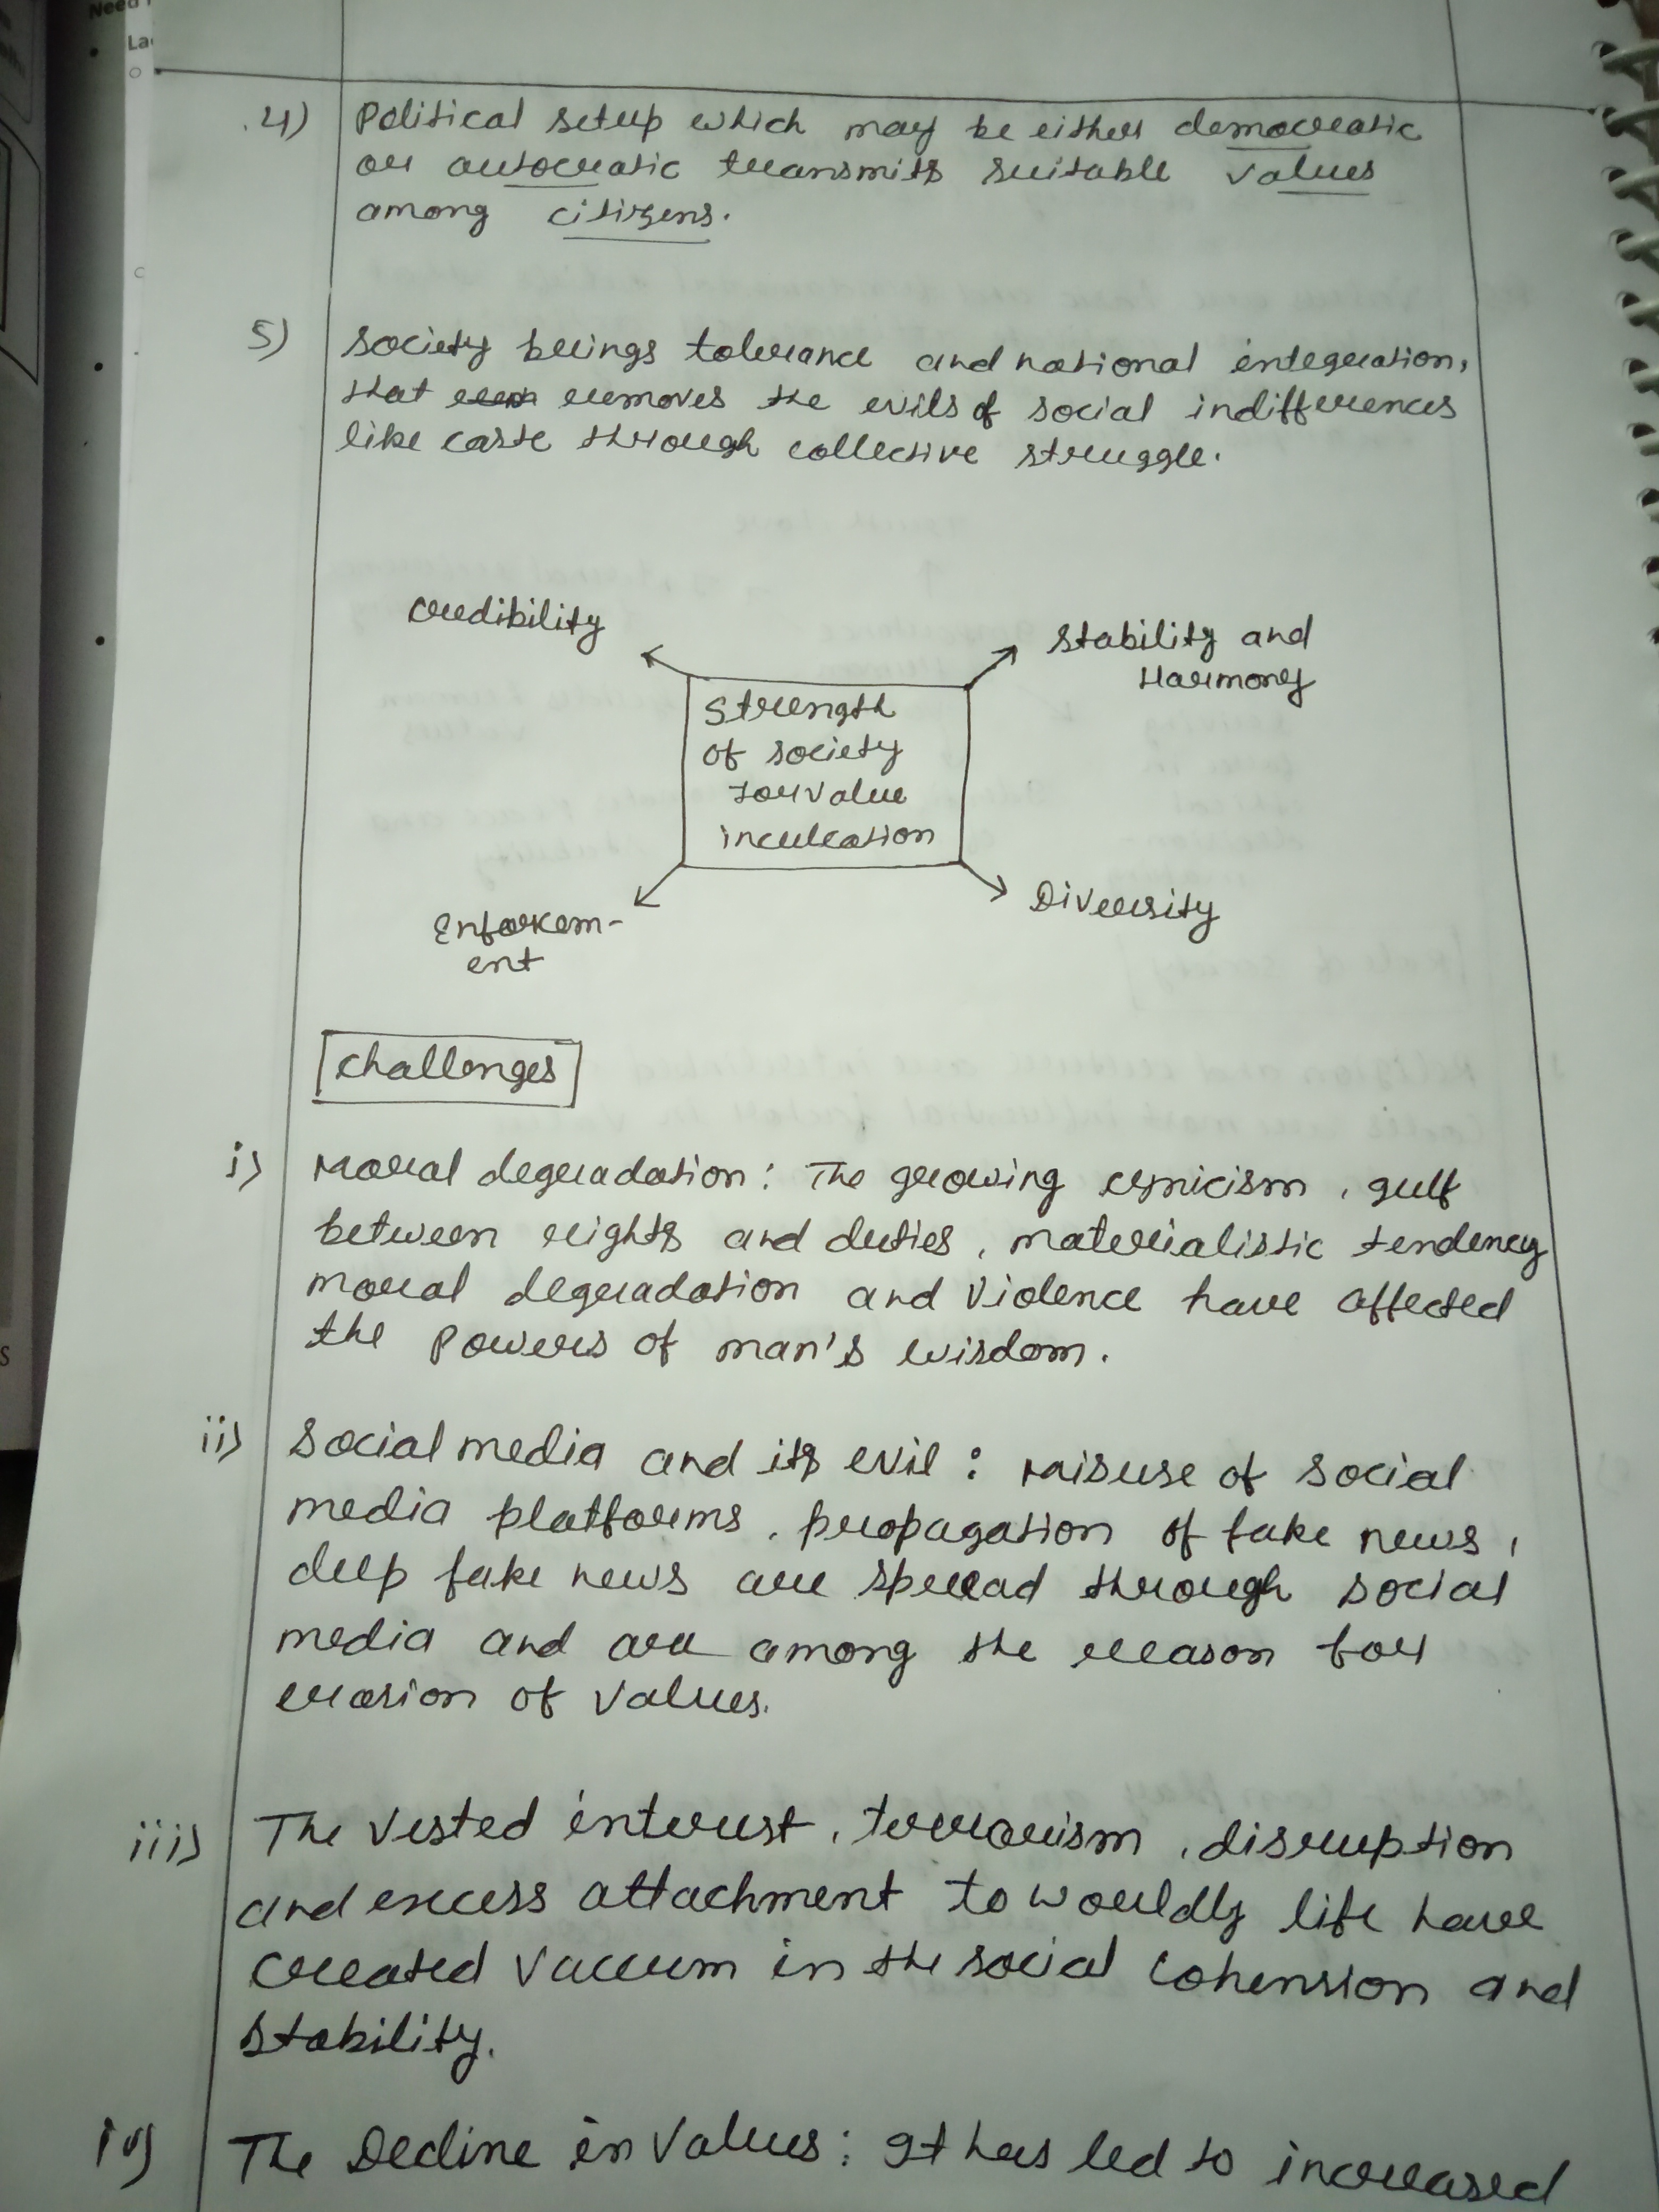 Need
La
4) Political setup which may be either democratic
or autocratic transmits suitable values
among citizens.
5) Society brings tolerance and national integration,
that removes the evils of social indifferences
like caste through collective struggle.
Credibility
Stability and
Harmony
Strength
of society
for value
inculcation
Enforcem-
ent
Diversity
Challenges
i) Moral degradation: The growing cynicism, gulf
between rights and duties, materialistic tendency
moral degradation and violence have affected
the powers of man's wisdom.
ii) Social media and its evil: Misuse of social
media platforms, propagation of fake news,
deep fake news are spread through social
media and are among the reason for
erosion of values.
iii) The vested interest, terrorism, disruption
and excess attachment to worldly life have
created vaccum in the social cohension and
stability.
iv) The Decline in Values: It has led to increased